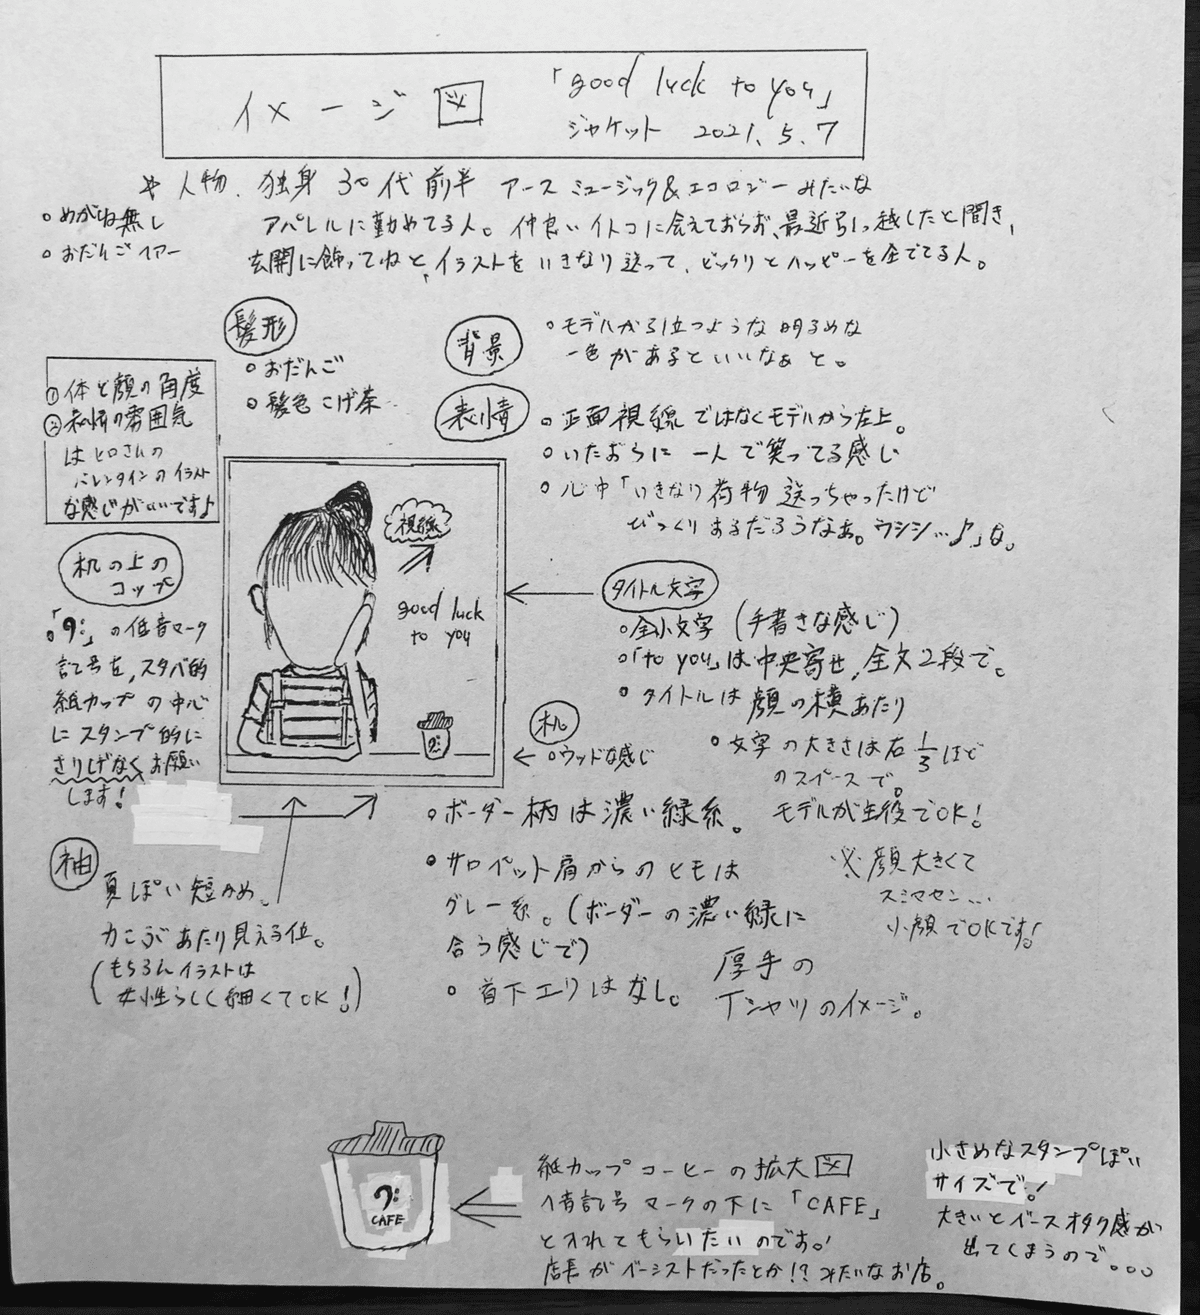 イメージ図
「good luck to you」
ジャケット 2021.5.7
* 人物. 独身 30代前半 アースミュージック&エコロジーみたいな
アパレルに勤めてる人。仲良いイトコに会えておらず、最近引っ越したと聞き、
玄関に飾ってねと、イラストをいきなり送って、ビックリとハッピーを企ててる人。
○ めがね無し
○ おだんごヘアー
髪形
○ おだんご
○ 髪色こげ茶
背景
○ モデルが引立つような明るめな
一色があるといいなぁと。
表情
○ 正面視線ではなくモデルから左上。
○ いたずらに一人で笑ってる感じ
○ 心中「いきなり荷物送っちゃったけど
びっくりするだろうなぁ。ウシシ…♪」な。
①体と顔の角度
②表情の雰囲気
はヒロさんの
バレンタインのイラスト
な感じがいいです♪
机の上の
コップ
○「𝄢」の低音マーク
記号を、スタバ的
紙カップの中心
にスタンプ的に
さりげなくお願い
します!
視線
good luck
to you
タイトル文字
○全小文字 (手書きな感じ)
○「to you」は中央寄せ,全文2段で。
○ タイトルは顔の横あたり
○ 文字の大きさは右1/3ほど
のスペースで。
モデルが主役でOK!
机
← ○ウッドな感じ
※顔大きくて
スミマセン…
小顔でOKです!
袖
夏ぽい短かめ。
力こぶあたり見える位。
(もちろんイラストは
女性らしく細くてOK!)
○ ボーダー柄は濃い緑系。
○ サロペット肩からのヒモは
グレー系。(ボーダーの濃い緑に
合う感じで)
○ 首下エリはなし。
厚手の
Tシャツのイメージ。
𝄢
CAFE
紙カップコーヒーの拡大図
ヘ音記号マークの下に「CAFE」
と入れてもらいたいのです!
店長がベーシストだったとか!?みたいなお店。
小さめなスタンプぽい
サイズで!
大きいとベースオタク感が
出てくまうので。。。